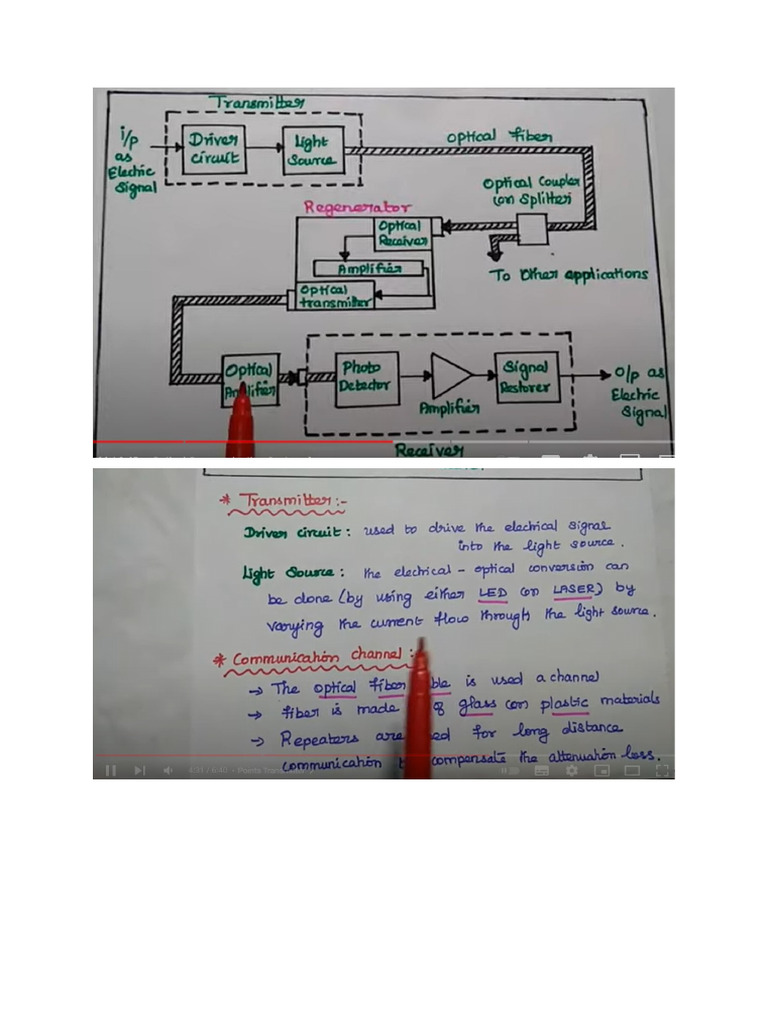 Transmitter
i/p
as
Electric
Signal
Driver
circuit
Light
Source
optical fiber
Optical Coupler
(or) Splitter
To Other applications
Regenerator
Optical
Receiver
Amplifier
Optical
transmitter
Optical
Amplifier
Photo
Detector
Amplifier
Signal
Restorer
O/p as
Electric
Signal
Receiver
* Transmitter:-
Driver circuit: used to drive the electrical signal
into the light source.
Light Source: the electrical - optical conversion can
be done (by using either LED (or) LASER) by
varying the current flow through the light source.
* Communication channel:
→ The optical fiber is used a channel
→ fiber is made of glass (or) plastic materials
→ Repeaters are for long distance
communication compensate the attenuation loss.